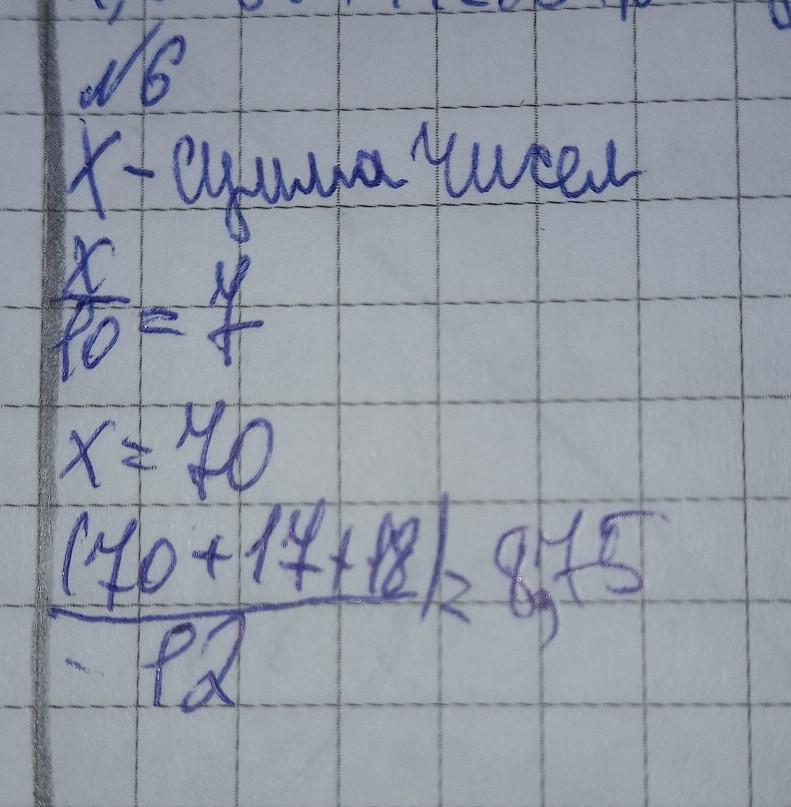 №6
X - сумма чисел
x/10 = 7
x = 70
(70+17+18)/12 = 8,75